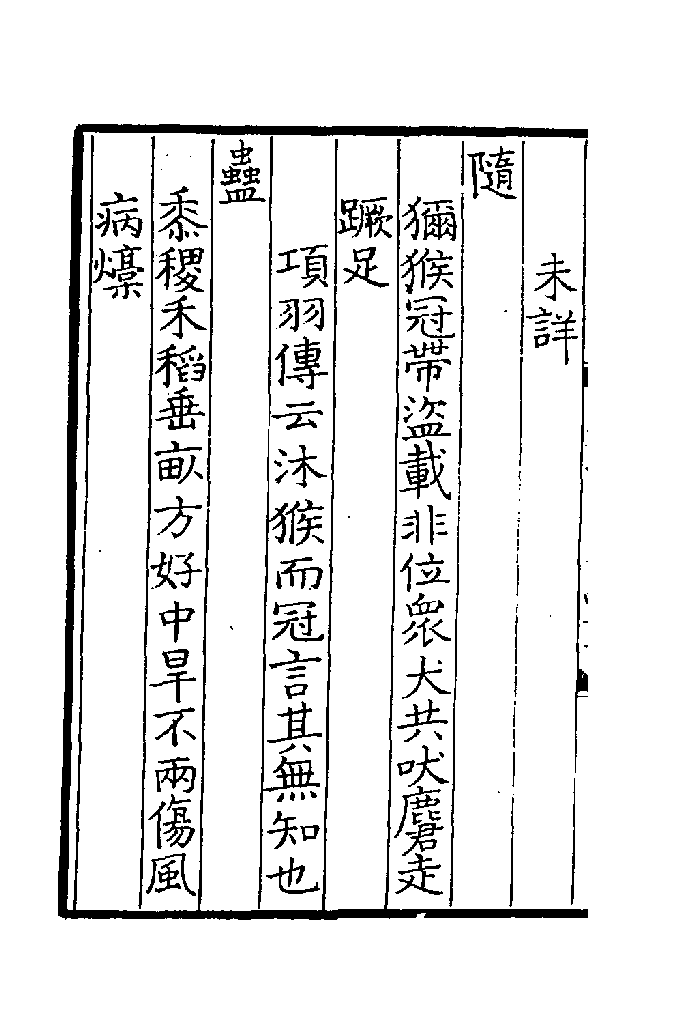 未詳
隨
獮猴冠帶盜載非位衆犬共吠麏走
蹶足
項羽傳云沐猴而冠言其無知也
蠱
黍稷禾稻垂畝方好中旱不兩傷風
病爡